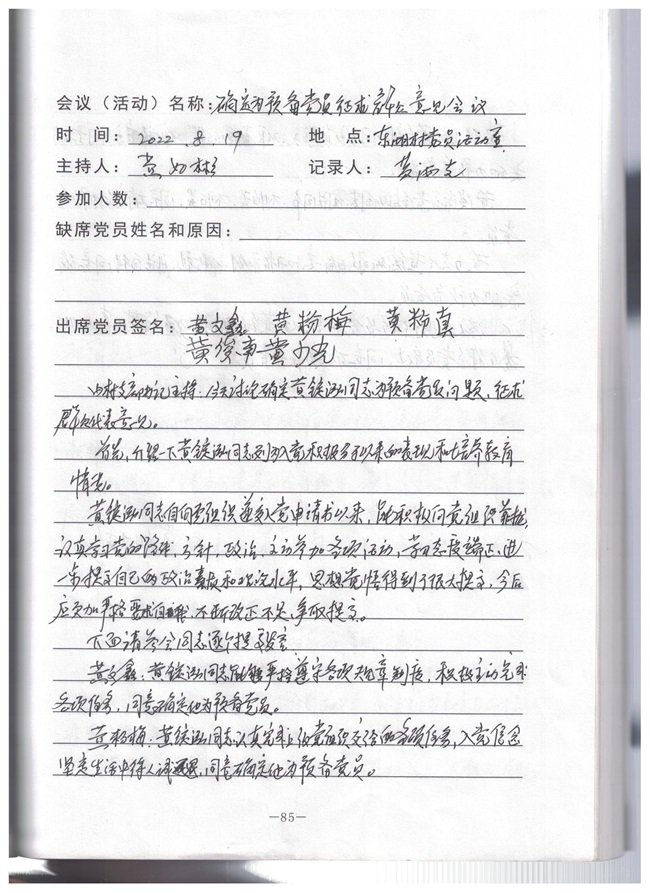 会议（活动）名称：确定为预备党员征求群众意见会议
时 间：2022.8.19 地 点：东湖村党员活动室
主持人：黄 彬 记录人：黄洒克
参加人数：
缺席党员姓名和原因：
出席党员签名：黄文鑫 黄杨梅 黄物真
黄俊声 黄少光
由村支部书记主持：今天讨论确定黄铵泓同志为预备党员问题，征求
群众代表意见。
首先，介绍一下黄铵泓同志列为入党积极分子以来的表现和培养教育
情况。
黄铵泓同志自向党组织递交入党申请书以来，能积极向党组织靠拢，
认真学习党的路线，方针，政治，主动参加各项活动，学习态度端正，进一
步提高自己的政治素质和理论水平，思想觉悟得到了很大提高，今后
应更加严格要求自我，不断改正不足，争取提高。
下面请参会同志逐个提升发言
黄文鑫：黄铵泓同志能够严格遵守各项规章制度，积极主动完成
各项任务，同意确定他为预备党员。
黄杨梅：黄铵泓同志认真完成上级党组织交给的各项任务，入党信念
坚定生活中待人诚恳，同意确定他为预备党员。
—85—